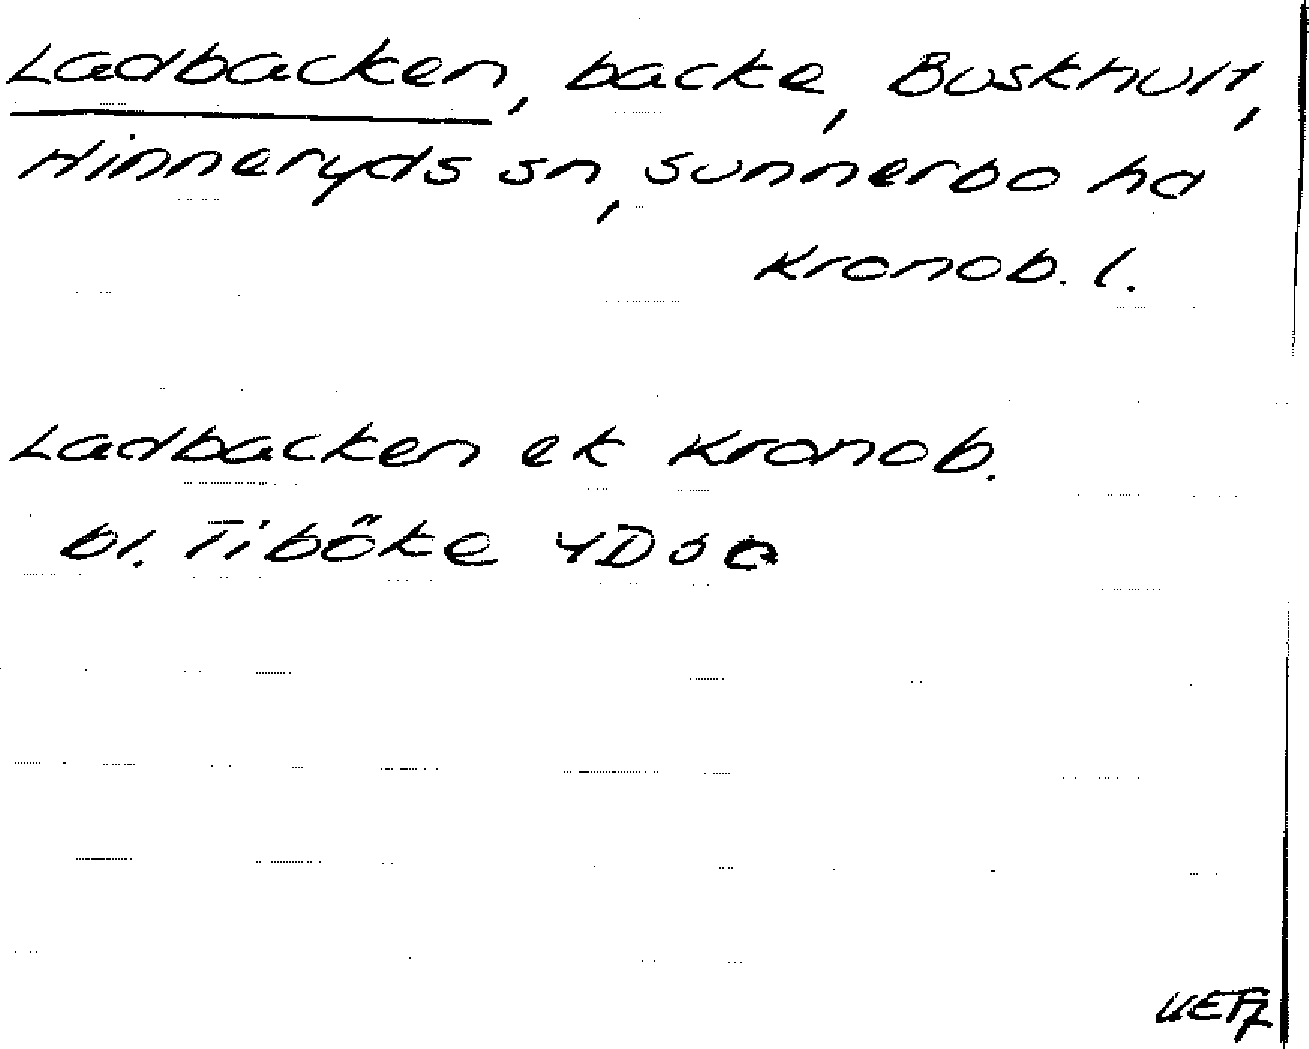 Ladbacken, backe, Buskhult,
Hinneryds sn, Sunnerbo hd
Kronob. l.
Ladbacken ek Kronob.
bl. Tiböke 4D